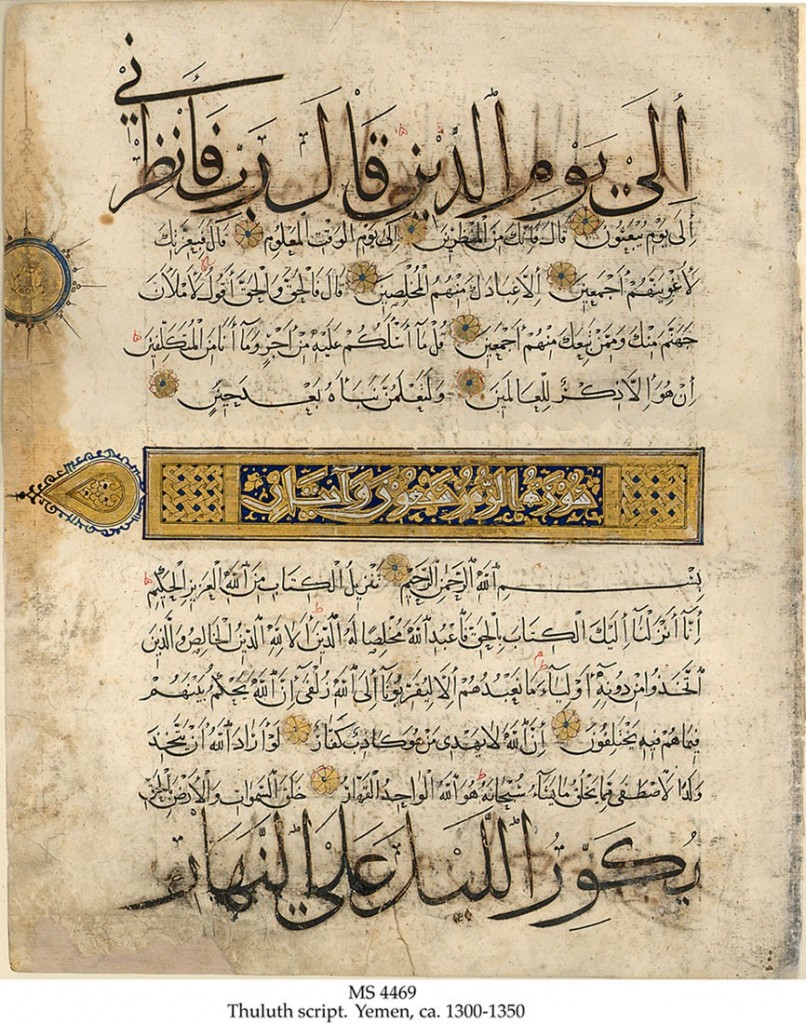 إِلَى يَوْمِ الدِّينِ قَالَ رَبِّ فَأَنظِرْنِي
إلى يوم يبعثون قال فإنك من المنظرين إلى يوم الوقت المعلوم قال فبعزتك
لأغوينهم أجمعين إلا عبادك منهم المخلصين قال فالحق والحق أقول لأملأن
جهنم منك وممن تبعك منهم أجمعين قل ما أسئلكم عليه من أجر وما أنا من المتكلفين
إن هو إلا ذكر للعالمين ولتعلمن نبأه بعد حين
سورة الزمر سبعون وآيتان
بسم الله الرحمن الرحيم تنزيل الكتاب من الله العزيز الحكيم
إنا أنزلنا إليك الكتاب بالحق فاعبد الله مخلصا له الدين ألا لله الدين الخالص والذين
اتخذوا من دونه أولياء ما نعبدهم إلا ليقربونا إلى الله زلفى إن الله يحكم بينهم
فيما هم فيه يختلفون إن الله لا يهدي من هو كاذب كفار لو أراد الله أن يتخذ
ولدا لاصطفى مما يخلق ما يشاء سبحانه هو الله الواحد القهار خلق السموات والأرض بالحق
يُكَوِّرُ اللَّيْلَ عَلَى النَّهَارِ
MS 4469
Thuluth script. Yemen, ca. 1300-1350